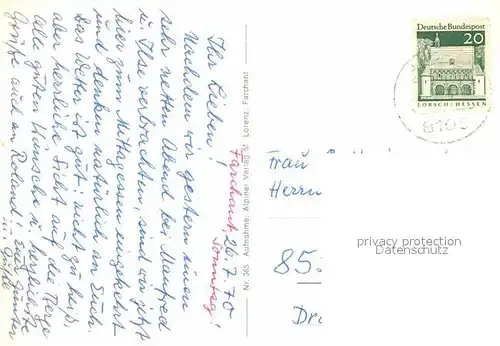 Farchant, 26.7.70
Sonntag!
Ihr Lieben!
Nachdem wir gestern einen
sehr netten Abend bei Manfred
u. Ilse verbrachten, sind wir jetzt
hier zum Mittagessen eingekehrt
und denken natürlich an Euch.
Das Wetter ist gut: nicht zu heiß,
aber herrliche Sicht auf die Berge
Alle guten Wünsche u. herzliche
Grüße auch an Roland!
Nr. 365 Aufnahme: Alpiner Verlag M. Lorenz, Farchant
Deutsche Bundespost
20
LORSCH/HESSEN
Frau
Herrn
85
privacy protection
Datenschutz